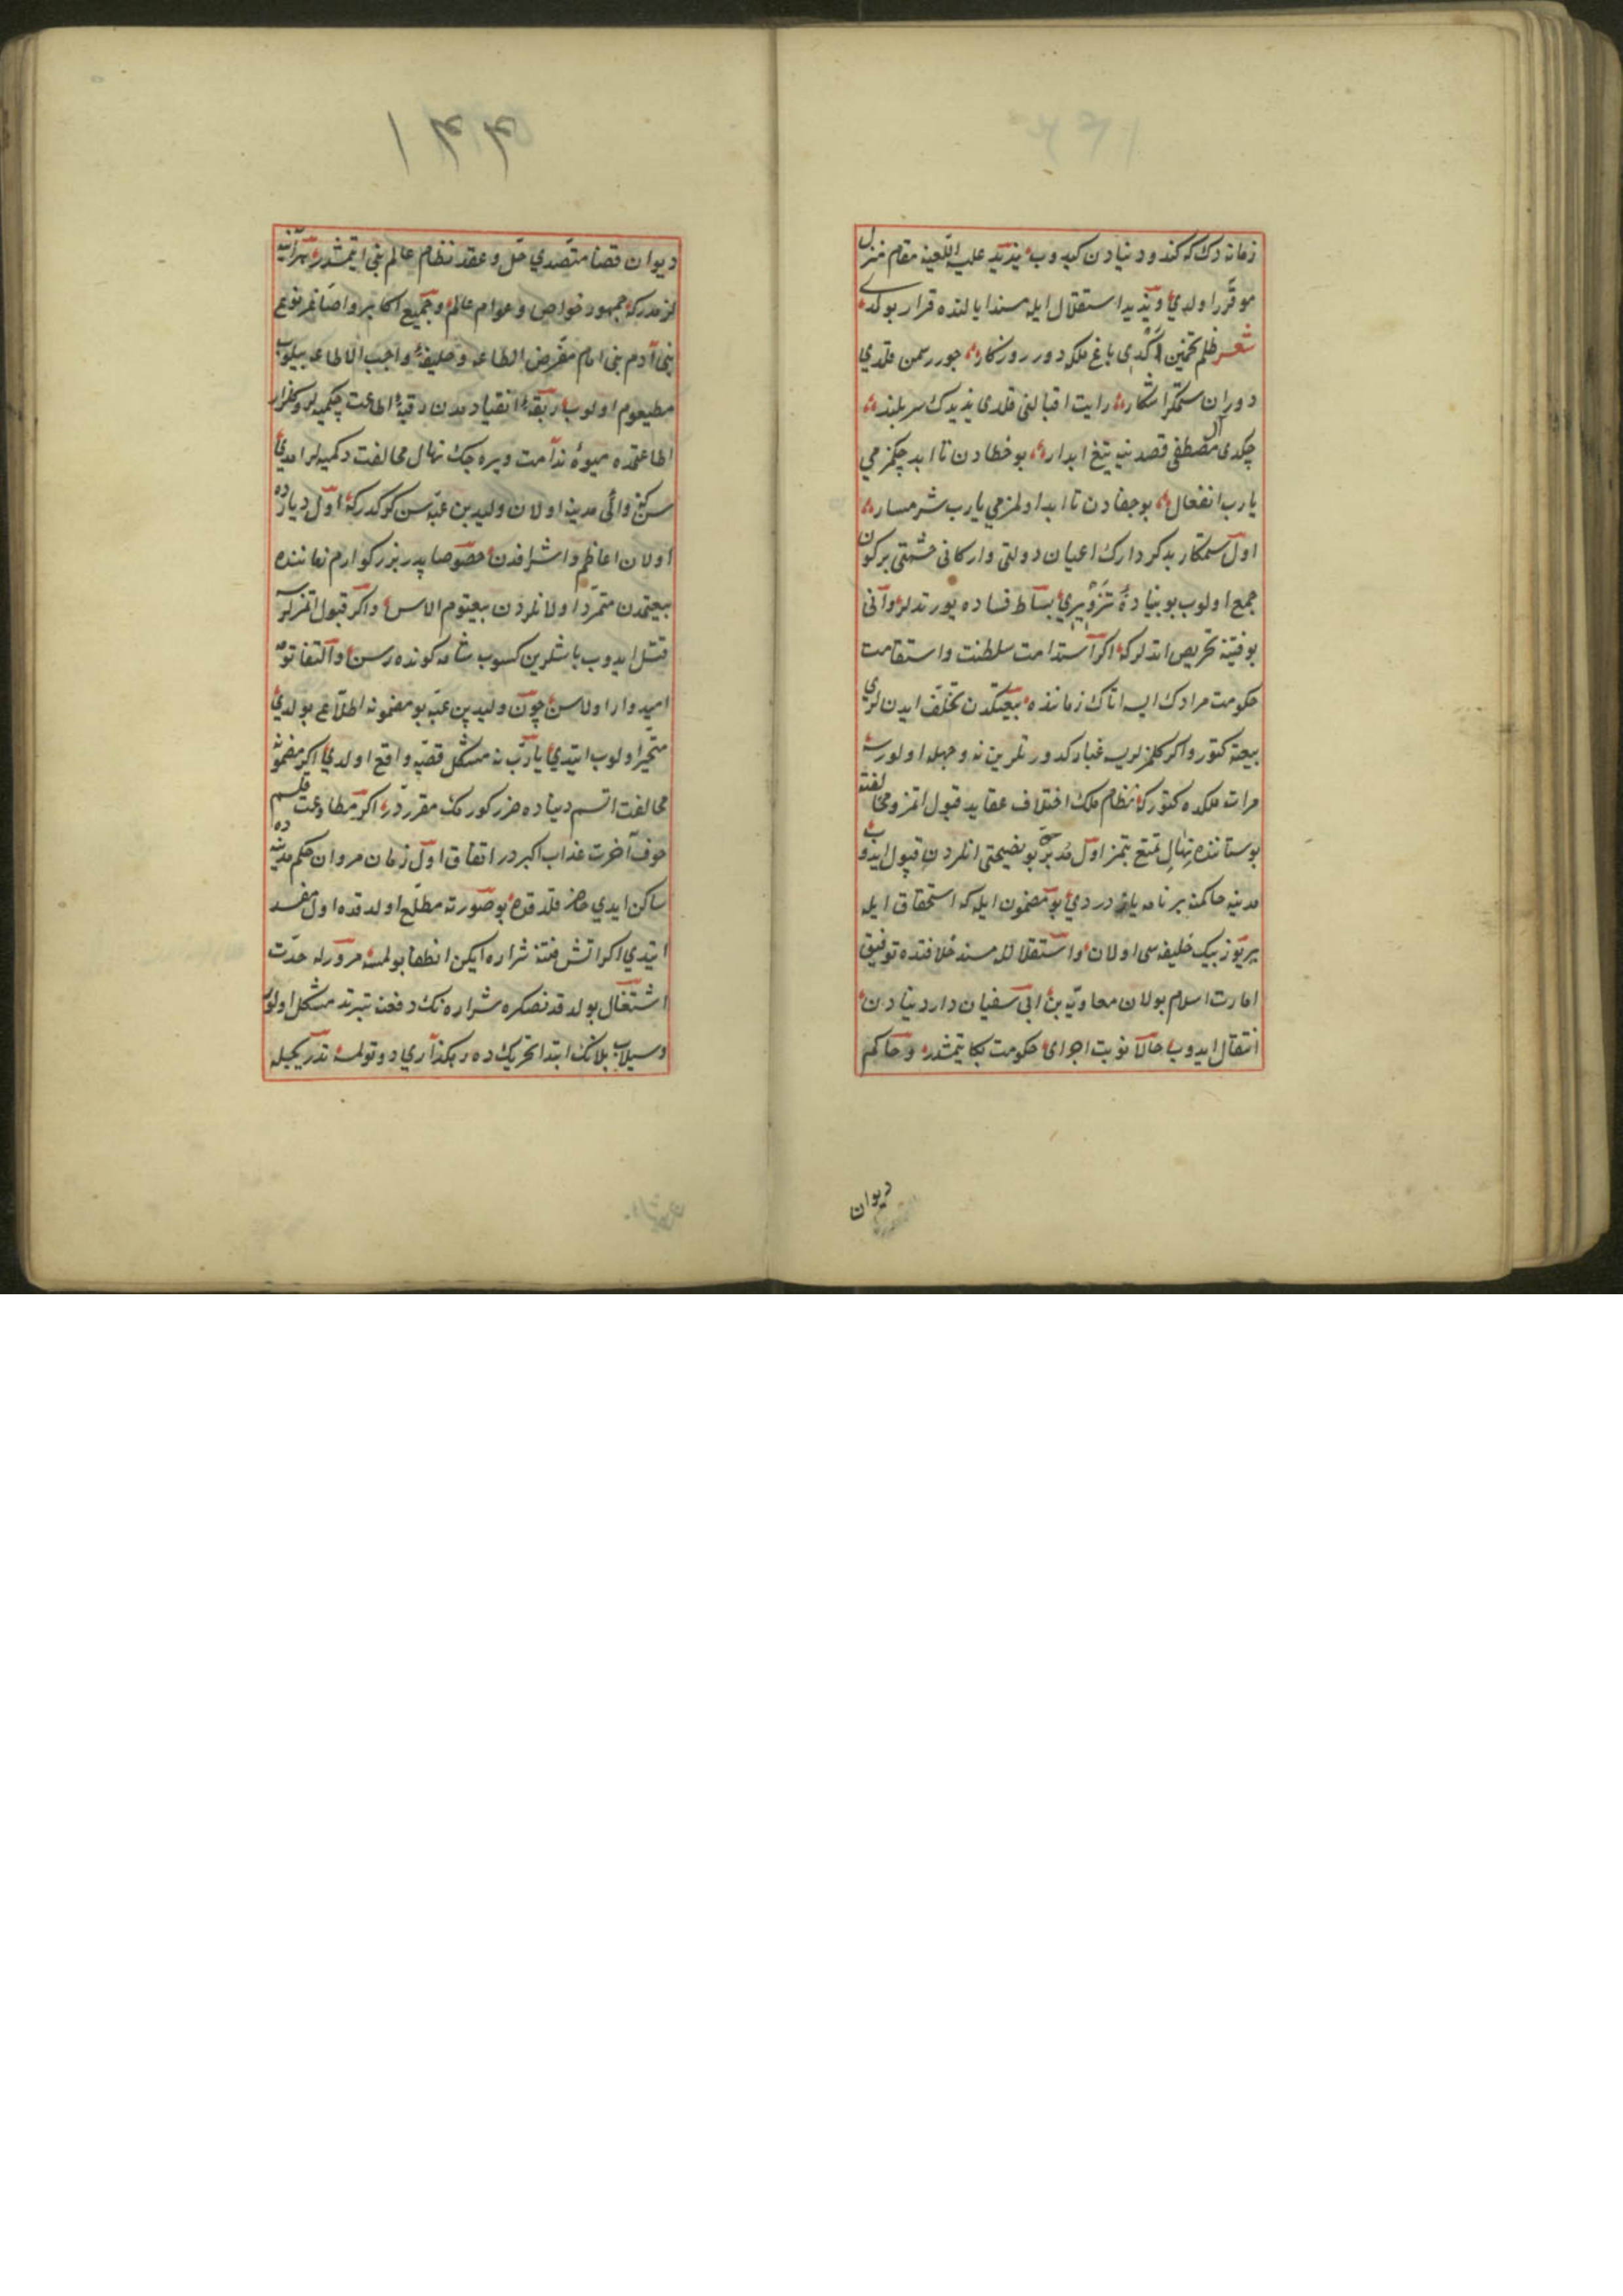 زمانه دك كه كندو دنيادن كيدوب يزيد عليه اللعينه مقام منزل
موقرر اولدي ويزيد استقلال ايله مسند ايالتده قرار بولدى
شعر ظلم تخمين اكدى باغ ملكه دور روزكار جور رسمن قلدي
دوران ستمكر اشكار رايت اقبالنى قلدى يزيدك سربلند
چكدى آل مصطفى قصدينه تيغ ابدار بو خطادن تا ابد چكمزمي
يارب انفعال بو جفادن تا ابد اولمزمي يارب شرمسار
اول ستمكار بدكردارك اعيان دولتى واركانى حشمتى بركون
جمع اولوب بو بنياده تزويرى بساط فساده يورتدلر وآنى
بو فتنه تحريص اتدلر كه اكر استدامت سلطنت واستقامت
حكومت مرادك ايسه اتاك زماننده بيعتكدن تخلف ايدنلرى
بيعته كتور واكر كلمزلريسه غبار كدورتلرين نه وجهله اولورسه
مرات ملكده كتور كه نظام ملك اختلاف عقايد قبول اتمز ومخالفته
بوستانده نهال تمتع بتمز اول مدبر بو نصيحتى انلردن قبول ايدوب
مدينه حاكمنه بر نامه يازدردي بو مضمون ايله كه استحقاق ايله
يريوزينك خليفه سى اولان واستقلالله مسند خلافتده توفيق
امارت اسلام بولان معاويه بن ابى سفيان دار دنيادن
انتقال ايدوب حالا نوبت اجراى حكومت بكا يتمشدر وحاكم
ديوان
١٤٤
ديوان قضا متصدي حل وعقد نظام عالم بنى ايتمشدر هرآينه
لازمدر كه جمهور خواص وعوام عالم وجميع اكابر واصاغر نوع
بنى آدم بنى امام مفرض الطاعه وخليفه واجب الاطاعه بيلوب
مطيعوم اولوب ربقه انقيادمدن رقبه اطاعت چكميه لر وكلزار
اطاعتمده ميوه ندامت ويره جك نهال مخالفت دكميه لر امدي
سنكه والى مدينه اولان وليد بن عتبه سن كركدركه اول ديارده
اولان اعاظم واشرافدن خصوصا پدر بزركوارم زماننده
بيعتمدن متمرد اولانلردن بيعتوم الاسن واكر قبول اتمزلرسه
قتل ايدوب باشلرين كسوب شامه كوندره سن والتفاتومه
اميدوار اولاسن چون وليد بن عتبه بو مضمونه اطلاع بولدي
متحير اولوب ايتدي يا رب نه مشكل قضيه واقع اولدي اكر مضمونه
مخالفت اتسم دنياده ضرر كورمك مقرردر اكر مطاوعت قلسم
خوف آخرت عذاب اكبردر اتفاق اول زمان مروان حكم مدينه ده
ساكن ايدي حاضر قلدقده بو صورته مطلع اولدقده اول مفسد
ايتدي اكر اتش فتنه شراره ايكن انطفا بولمسه مرورله حدت
اشتغال بولدقدنصكره شراره نك دفعنه تبرته مشكل اولور
وسيلاب بلانك ابتدا تحريكده رهكذارى دوتولمسه تدريجيله